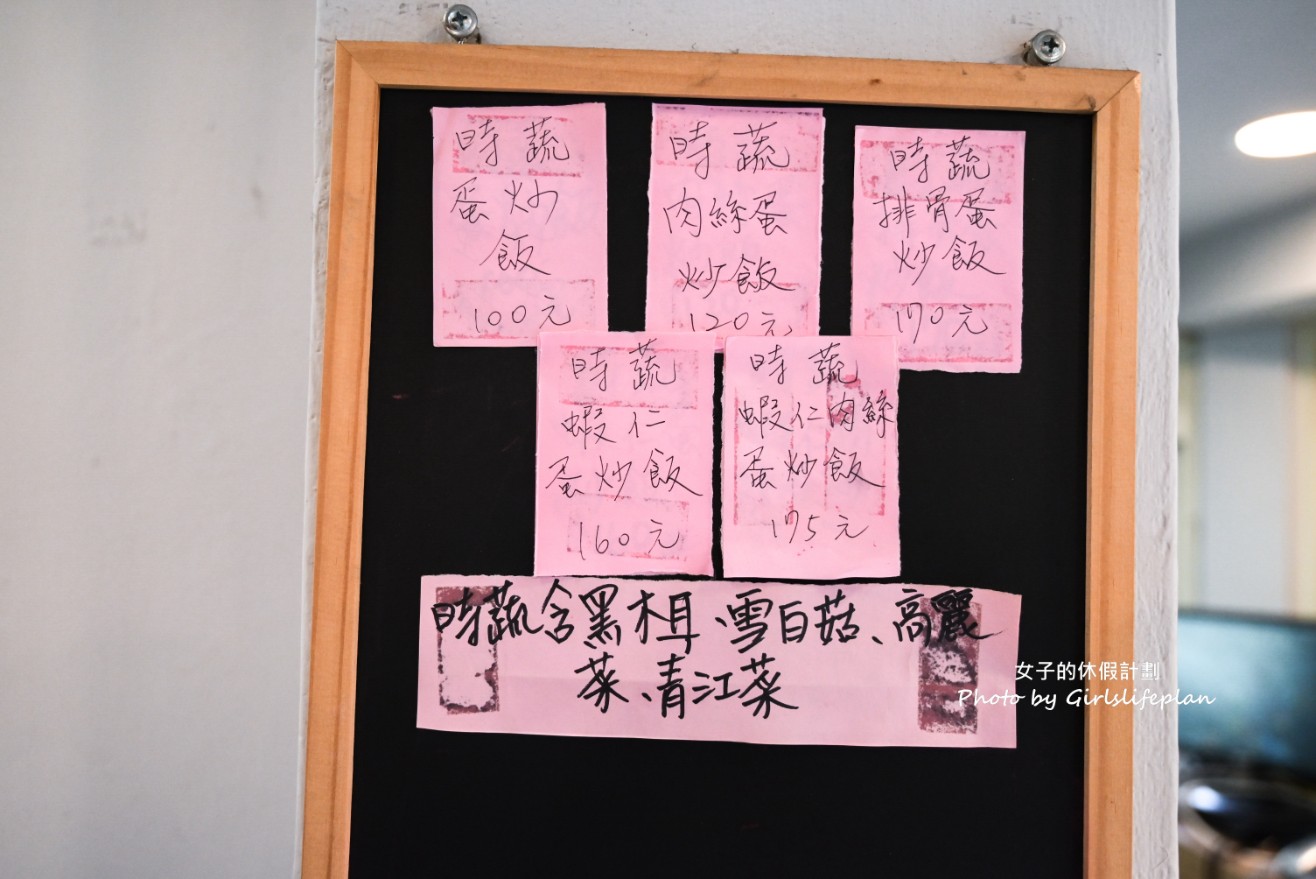 時蔬
蛋炒
飯
100元
時蔬
肉絲蛋
炒飯
120元
時蔬
排骨蛋
炒飯
170元
時蔬
蝦仁
蛋炒飯
160元
時蔬
蝦仁肉絲
蛋炒飯
175元
時蔬含黑木耳、雪白菇、高麗
菜、青江菜
女子的休假計劃
Photo by Girlslifeplan